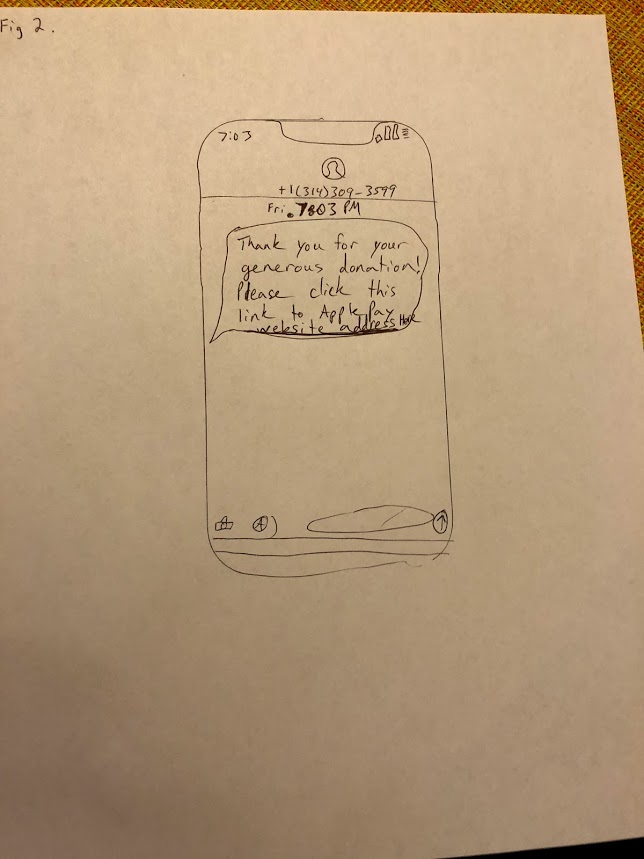 Fig 2.
7:03
+1(314)309-3599
Fri. 7:03 PM
Thank you for your
generous donation!
Please click this
link to Apple Pay
website address Here
A